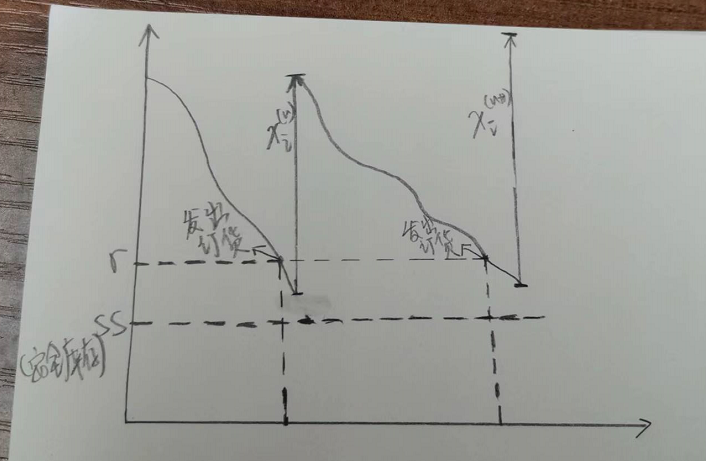 x_i^(n)
x_i^(n+1)
发出
订货
发出
订货
r
SS
(安全库存)